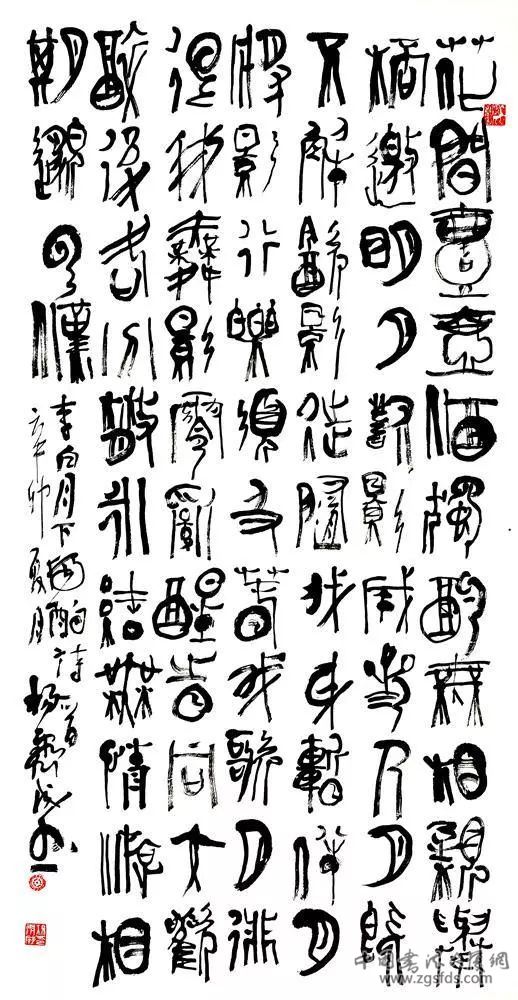 花間壹壺酒獨酌無相親舉
桮邀明月對影成叁人月既
不解飲影徒隨我身暫伴月
將影行樂須及春我歌月徘
徊我舞影零亂醒時同交歡
醉後各分散永結無情遊相
期邈雲漢
李白月下獨酌詩一首
辛卯夏月楊
www.zgsfds.com